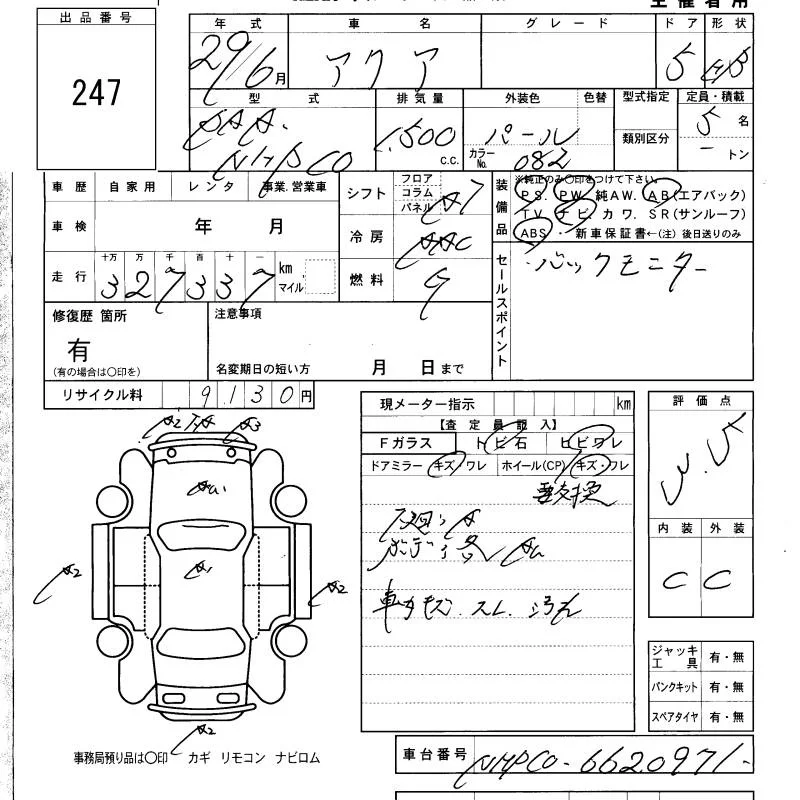 主催者用
出品番号
247
年式 車名 グレード ドア 形状
29/6月 アクア 5 HB
型式 排気量 外装色 色替 型式指定 定員・積載
DAA- 1,500 c.c. パール 類別区分 5名
NHP10 カラーNo. 082 -トン
車歴 自家用 レンタ 事業.営業車
シフト フロア コラム パネル AT
車検 年 月
冷房 AAC
走行 十万 万 千 百 十 一
327337 km マイル
燃料 G
装備品 ※純正のみ〇印をつけて下さい。
PS. PW. 純AW. AB(エアバック)
TV. ナビ. カワ. SR(サンルーフ)
ABS ・ 新車保証書←(注) 後日送りのみ
セールスポイント ・バックモニター
修復歴 箇所
有
(有の場合は〇印を)
注意事項
名変期日の短い方 月 日まで
リサイクル料 9,130円
現メーター指示 km
【査定員記入】
Fガラス トビ石 ヒビワレ
ドアミラー キズ・ワレ ホイール(CP) キズ・ワレ
要交換
下廻り サ
ボディ 各
車内 キズ. スレ. 汚れ
評価点
3.5
内装 外装
C C
A2 A3
A1
A2 A2
A2
ジャッキ工具 有・無
パンクキット 有・無
スペアタイヤ 有・無
事務局預り品は〇印 カギ リモコン ナビロム
車台番号 NHP10-6620971-